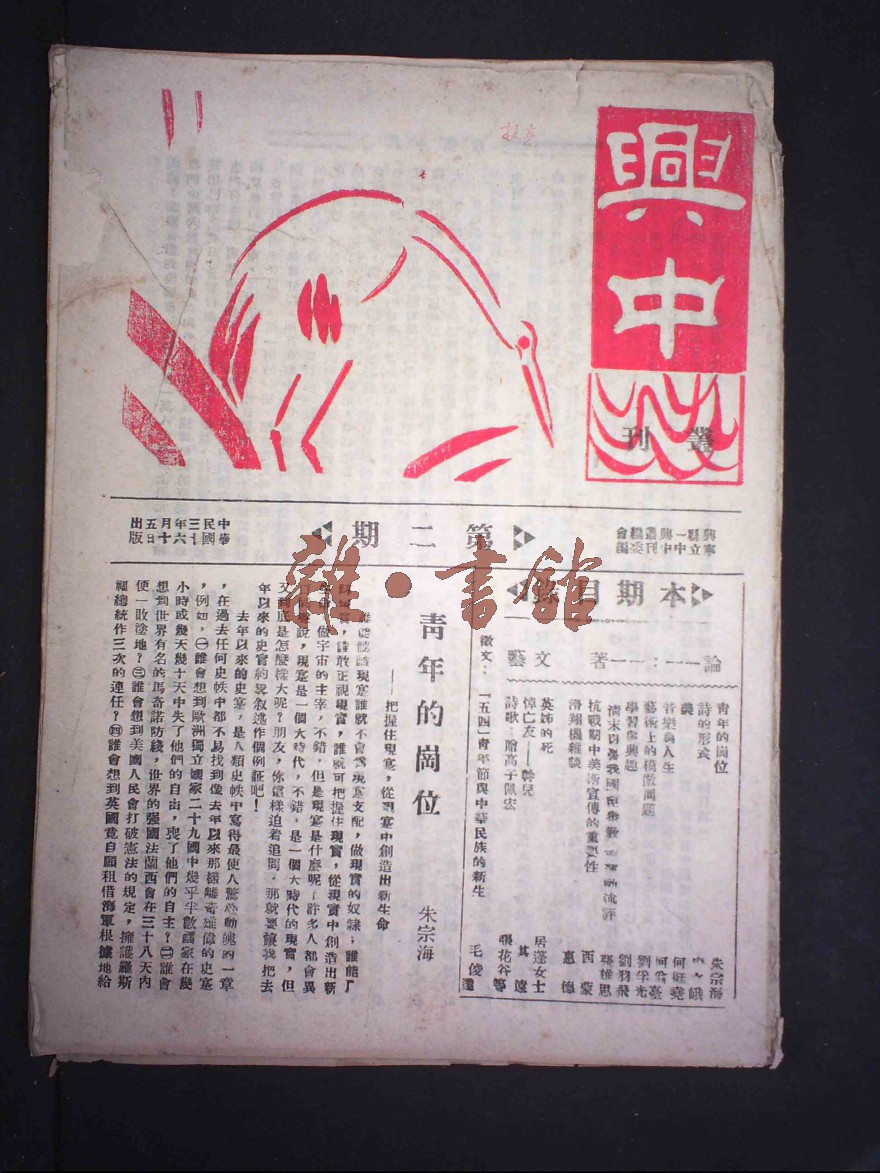 興中
叢刊
興寧縣立一中興中叢刊編委會編
第二期
中華民國三十六年十月五日出版
本期目錄
論著
青年的崗位 朱宗海
詩的形式
美
音樂與人生
藝術上的模倣問題
學習與興趣 劉羽飛
抗戰期中美術宣傳的重要性 西蒙
滑翔機雜談 惠德
文藝
英姊的死 居蓬女士
悼亡友——幹兒 其遠
詩歌：贈高子佩宏 張花谷等
徵文：「五四」青年節與中華民族的新生 毛俊遠
青年的崗位
——把握住現實，從現實中創造出新生命
朱宗海
誰能認識現實誰就不會為現實支配，做現實的奴隸；誰能
誰敢正視現實，誰就可把握住現實，從現實中創造出新
做宇宙的主宰，不錯，但是現實是什麼呢？許多人都會異
說，現實是一個大時代，不錯，是一個大時代的現實，但
又到底是怎麼樣大呢？朋友，你這樣迫着追問，那就要讓我把去
年以來的史實約畧叙述作個例証吧！
去年以來的史實，是人類史帙中寫得最使人驚心動魄的一章
，在過去任何史帙中都不易找到像去年以來那樣離奇雄偉的史實
，例如，㈠誰會想到歐洲獨立國家二十九國中幾乎半數國家在幾
小時或幾天幾十天中失了他們的自由，喪了他們的自主？㈡誰會
想到世界有名的馬奇諾防綫，世界的强國法蘭西會在三十八天內
便一敗塗地？㈢誰會想到美國人民會打破憲法的規定，擁護羅斯
福總統作三次的連任？㈣誰會想到英國竟自願租借海軍根據地給
雜·書館